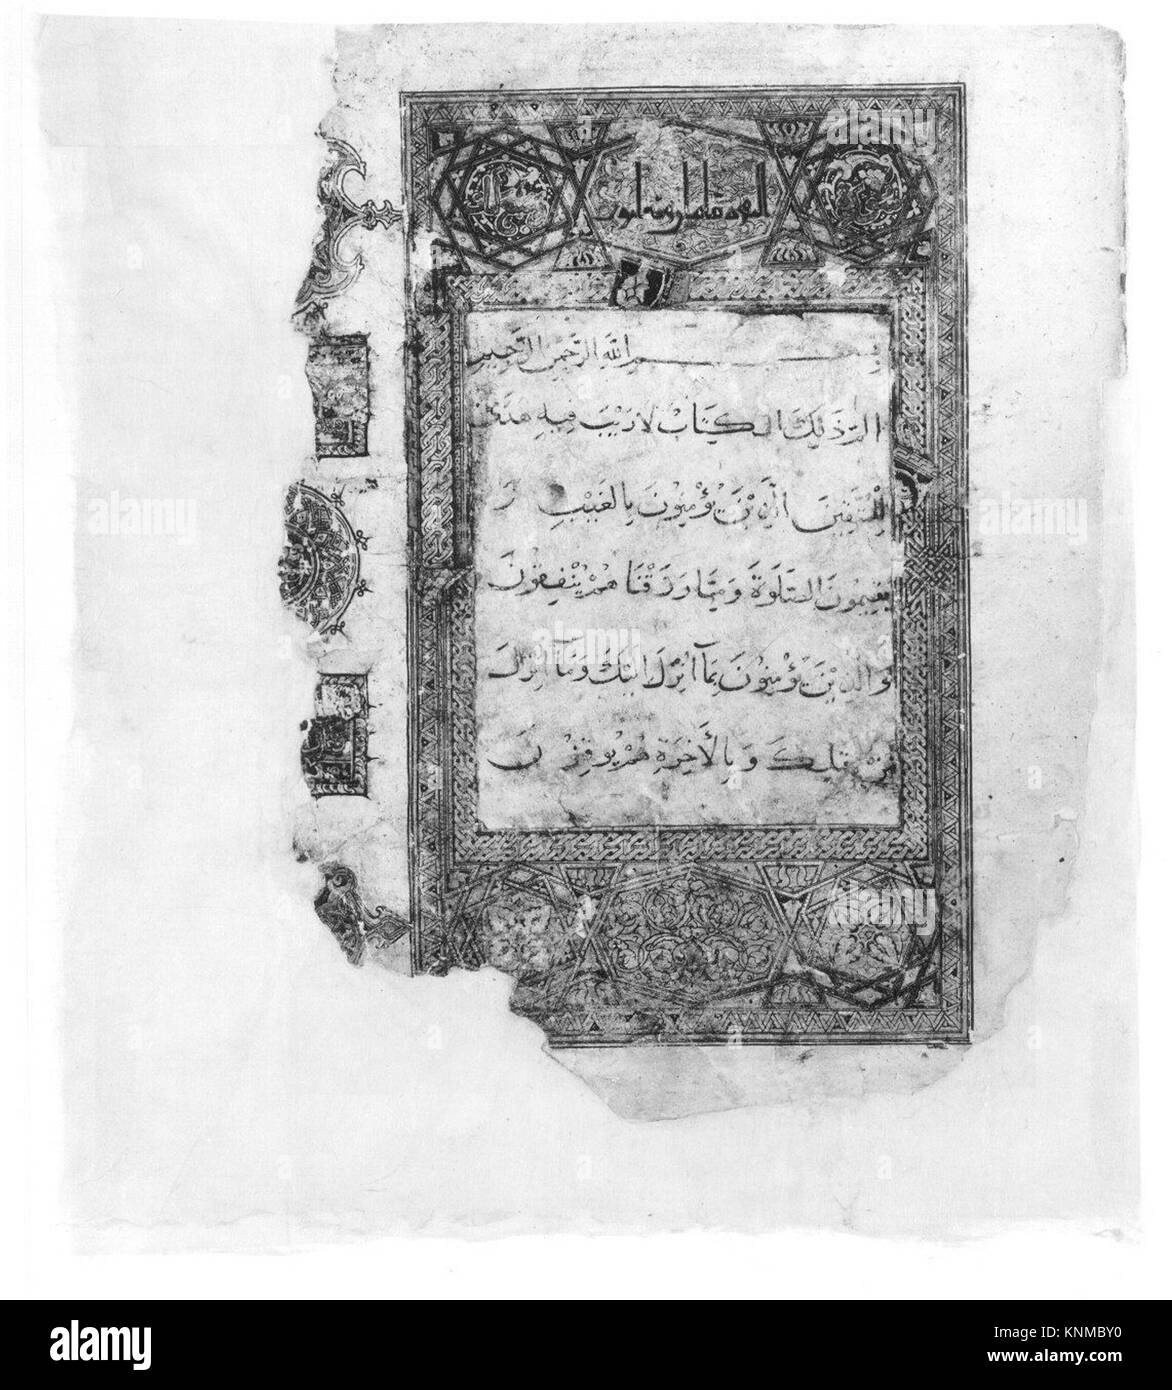 بسم الله الرَّحْمٰنِ الرَّحِيمِ
الم ذَلِكَ الْكِتَابُ لَا رَيْبَ فِيهِ هُدًى
لِلْمُتَّقِينَ الَّذِينَ يُؤْمِنُونَ بِالْغَيْبِ وَ
يُقِيمُونَ الصَّلَوةَ وَمِمَّا رَزَقْنَا هُمْ يُنْفِقُونَ
وَالَّذِينَ يُؤْمِنُونَ بِمَا أُنْزِلَ إِلَيْكَ وَمَا أُنْزِلَ
مِنْ قَبْلِكَ وَبِالْأَخِرَةِ هُمْ يُوقِنُونَ
alamy
alamy
alamy
alamy
alamy
alamy
alamy
Image ID: KNMBY0
www.alamy.com